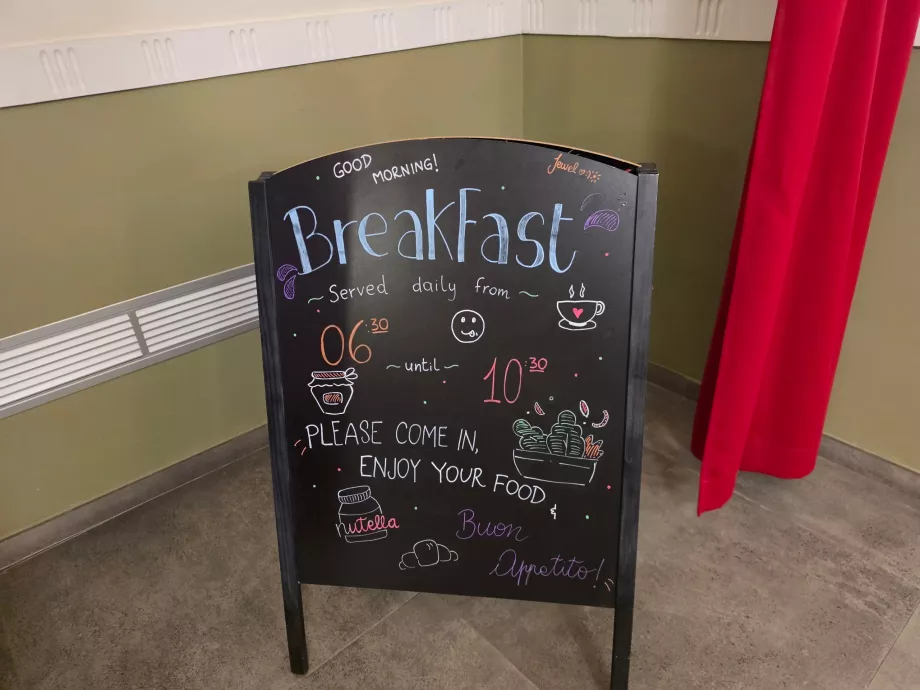 GOOD
MORNING!
Jewel
BreakFast
~ Served daily from ~
06:30
~ until ~
10:30
PLEASE COME IN,
ENJOY YOUR FOOD
&
nutella
Buon
Appetito!